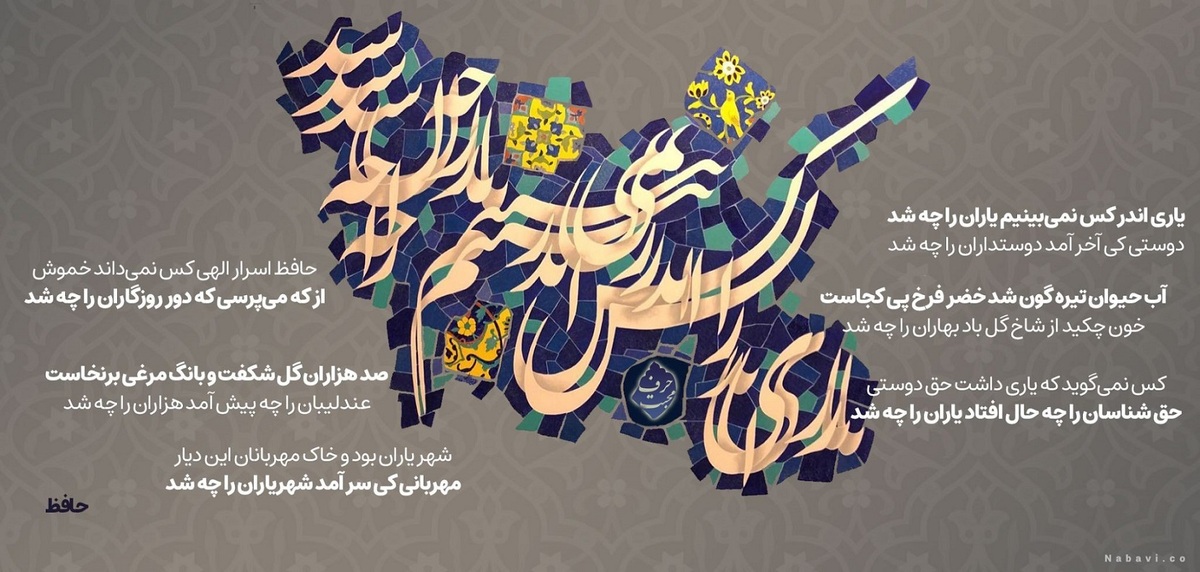 یاری اندر کس نمی‌بینیم یاران را چه شد
یاری اندر کس نمی‌بینیم یاران را چه شد
دوستی کی آخر آمد دوستداران را چه شد
آب حیوان تیره گون شد خضر فرخ پی کجاست
خون چکید از شاخ گل باد بهاران را چه شد
کس نمی‌گوید که یاری داشت حق دوستی
حق شناسان را چه حال افتاد یاران را چه شد
حافظ اسرار الهی کس نمی‌داند خموش
از که می‌پرسی که دور روزگاران را چه شد
صد هزاران گل شکفت و بانگ مرغی برنخاست
عندلیبان را چه پیش آمد هزاران را چه شد
شهر یاران بود و خاک مهربانان این دیار
مهربانی کی سر آمد شهریاران را چه شد
حافظ
حرف
محبت
Nabavi.co